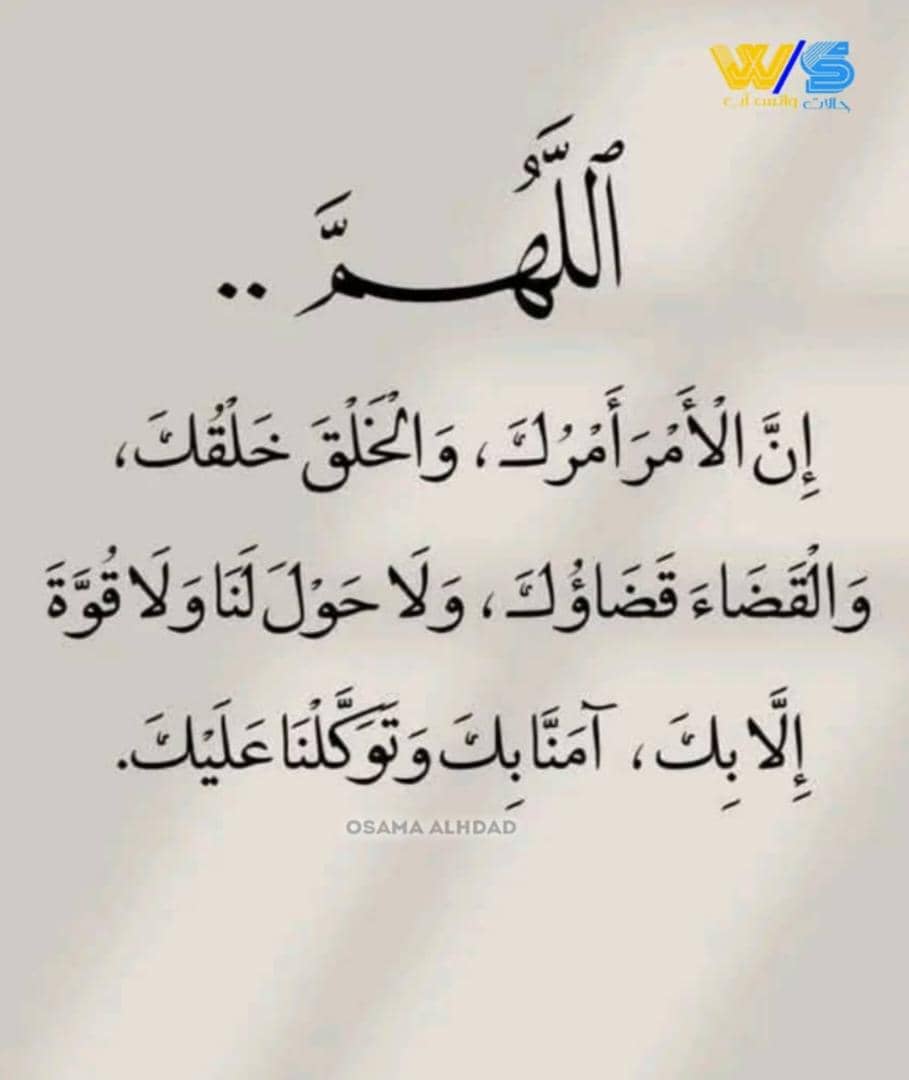 W/S
حالات واتس اب
ٱللَّهُمَّ ..
إِنَّ الْأَمْرَ أَمْرُكَ، وَالْخَلْقَ خَلْقُكَ،
وَالْقَضَاءَ قَضَاؤُكَ، وَلَا حَوْلَ لَنَا وَلَا قُوَّةَ
إِلَّا بِكَ، آمَنَّا بِكَ وَتَوَكَّلْنَا عَلَيْكَ.
OSAMA ALHDAD